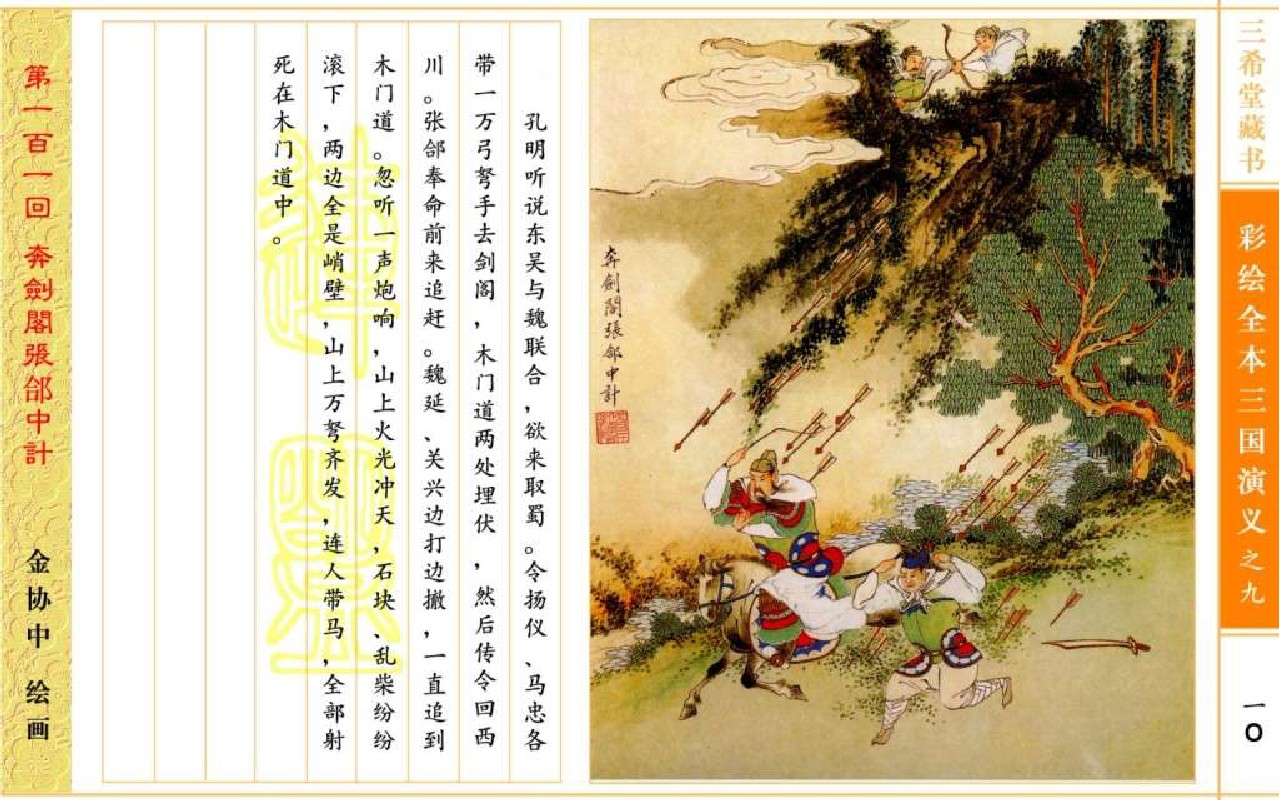 三希堂藏书
彩绘全本三国演义之九
一〇
奔劍閣張郃中計
孔明听说东吴与魏联合，欲来取蜀。令扬仪、马忠各
带一万弓弩手去剑阁，木门道两处埋伏，然后传令回西
川。张郃奉命前来追赶。魏延、关兴边打边撤，一直追到
木门道。忽听一声炮响，山上火光冲天，石块、乱柴纷纷
滚下，两边全是峭壁，山上万弩齐发，连人带马，全部射
死在木门道中。
第一百一回 奔劍閣張郃中計
金协中 绘画